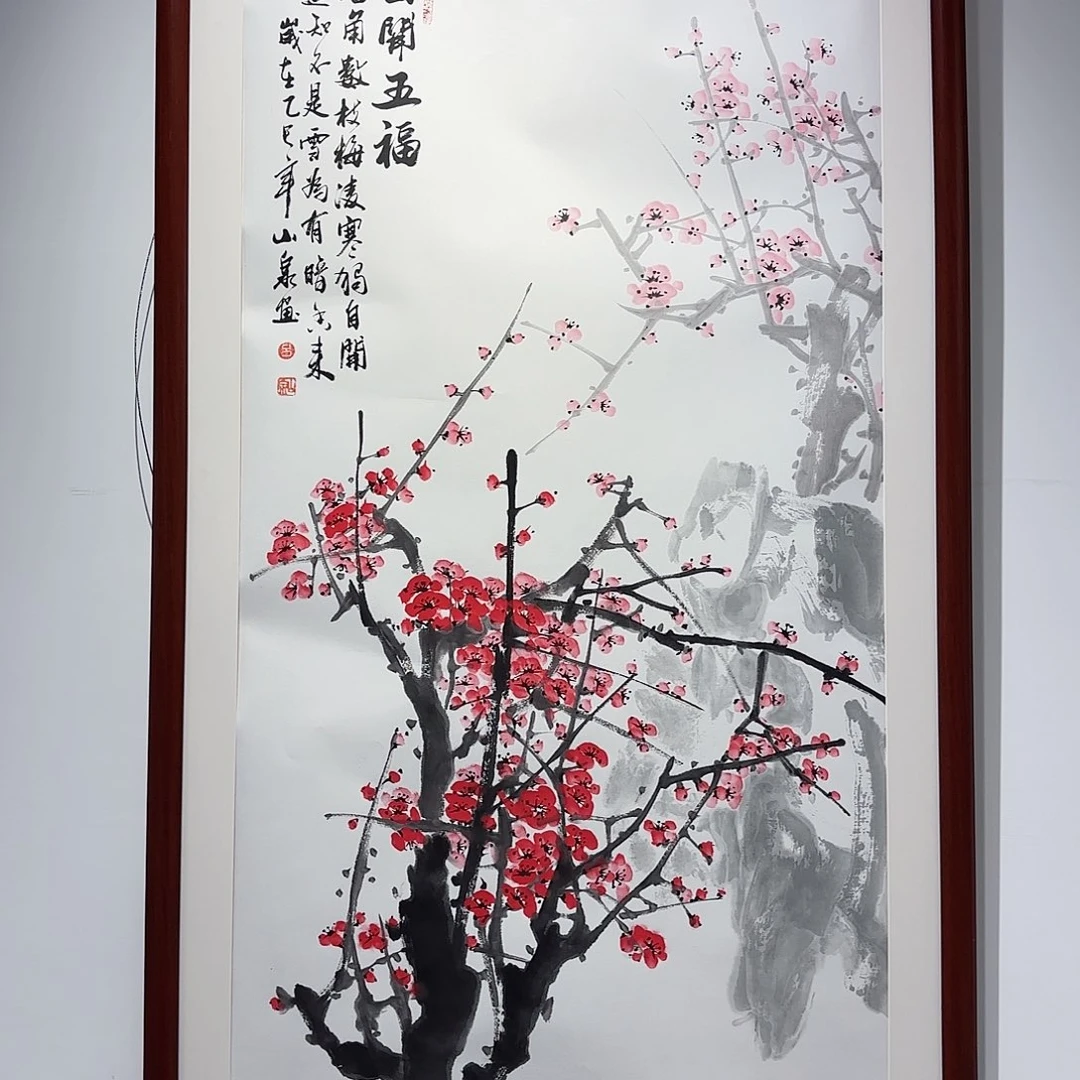 開五福
角數枝梅凌寒獨自開
知不是雪為有暗香来
歲在乙巳年山泉畫